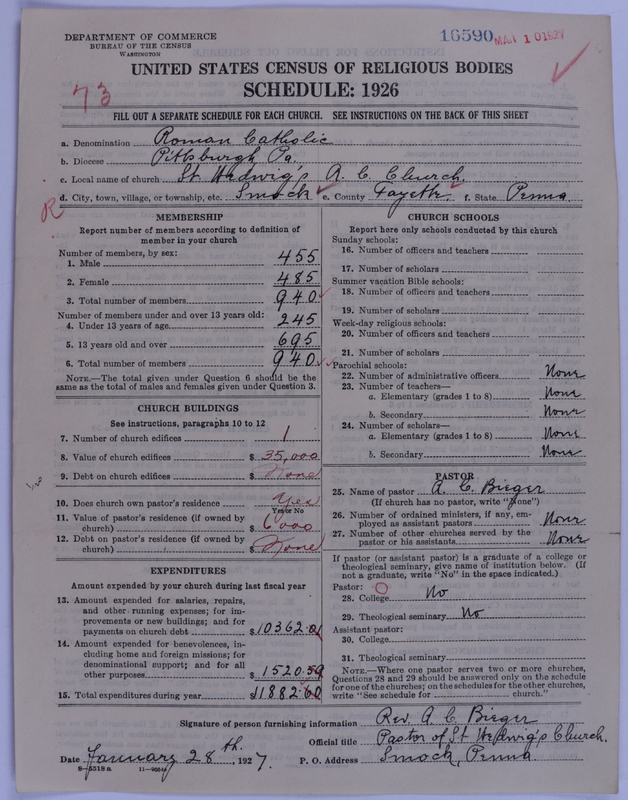 DEPARTMENT OF COMMERCE
BUREAU OF THE CENSUS
WASHINGTON
16590 MAR 10 1927
UNITED STATES CENSUS OF RELIGIOUS BODIES
SCHEDULE: 1926
73
FILL OUT A SEPARATE SCHEDULE FOR EACH CHURCH. SEE INSTRUCTIONS ON THE BACK OF THIS SHEET
a. Denomination Roman Catholic
b. Diocese Pittsburgh Pa.
c. Local name of church St Hedwig's R. C. Church.
d. City, town, village, or township, etc. Smock e. County Fayette f. State Penna.
R
MEMBERSHIP
Report number of members according to definition of
member in your church
Number of members, by sex:
1. Male 455
2. Female 485
3. Total number of members 940
Number of members under and over 13 years old:
4. Under 13 years of age 245
5. 13 years old and over 695
6. Total number of members 940
NOTE.—The total given under Question 6 should be the
same as the total of males and females given under Question 3.
CHURCH BUILDINGS
See instructions, paragraphs 10 to 12
7. Number of church edifices 1
8. Value of church edifices $ 35,000
9. Debt on church edifices $ None
10. Does church own pastor's residence Yes
Yes or No
11. Value of pastor's residence (if owned by
church) $ 6000
12. Debt on pastor's residence (if owned by
church) $ None
EXPENDITURES
Amount expended by your church during last fiscal year
13. Amount expended for salaries, repairs,
and other running expenses; for im-
provements or new buildings; and for
payments on church debt $ 10362.01
14. Amount expended for benevolences, in-
cluding home and foreign missions; for
denominational support; and for all
other purposes $ 1520.59
15. Total expenditures during year $ 11882.60
CHURCH SCHOOLS
Report here only schools conducted by this church
Sunday schools:
16. Number of officers and teachers
17. Number of scholars
Summer vacation Bible schools:
18. Number of officers and teachers
19. Number of scholars
Week-day religious schools:
20. Number of officers and teachers
21. Number of scholars
Parochial schools:
22. Number of administrative officers None
23. Number of teachers—
a. Elementary (grades 1 to 8) None
b. Secondary None
24. Number of scholars—
a. Elementary (grades 1 to 8) None
b. Secondary None
PASTOR
25. Name of pastor A. C. Bieger
(If church has no pastor, write "None")
26. Number of ordained ministers, if any, em-
ployed as assistant pastors None
27. Number of other churches served by the
pastor or his assistants None
If pastor (or assistant pastor) is a graduate of a college or
theological seminary, give name of institution below. (If
not a graduate, write "No" in the space indicated.)
Pastor:
28. College No
29. Theological seminary No
Assistant pastor:
30. College
31. Theological seminary
NOTE.—Where one pastor serves two or more churches,
Questions 28 and 29 should be answered only on the schedule
for one of the churches; on the schedules for the other churches,
write "See schedule for church."
Signature of person furnishing information Rev. A. C. Bieger
Official title Pastor of St Hedwig's Church.
Date January 28th, 1927. P. O. Address Smock, Penna
8-5518a